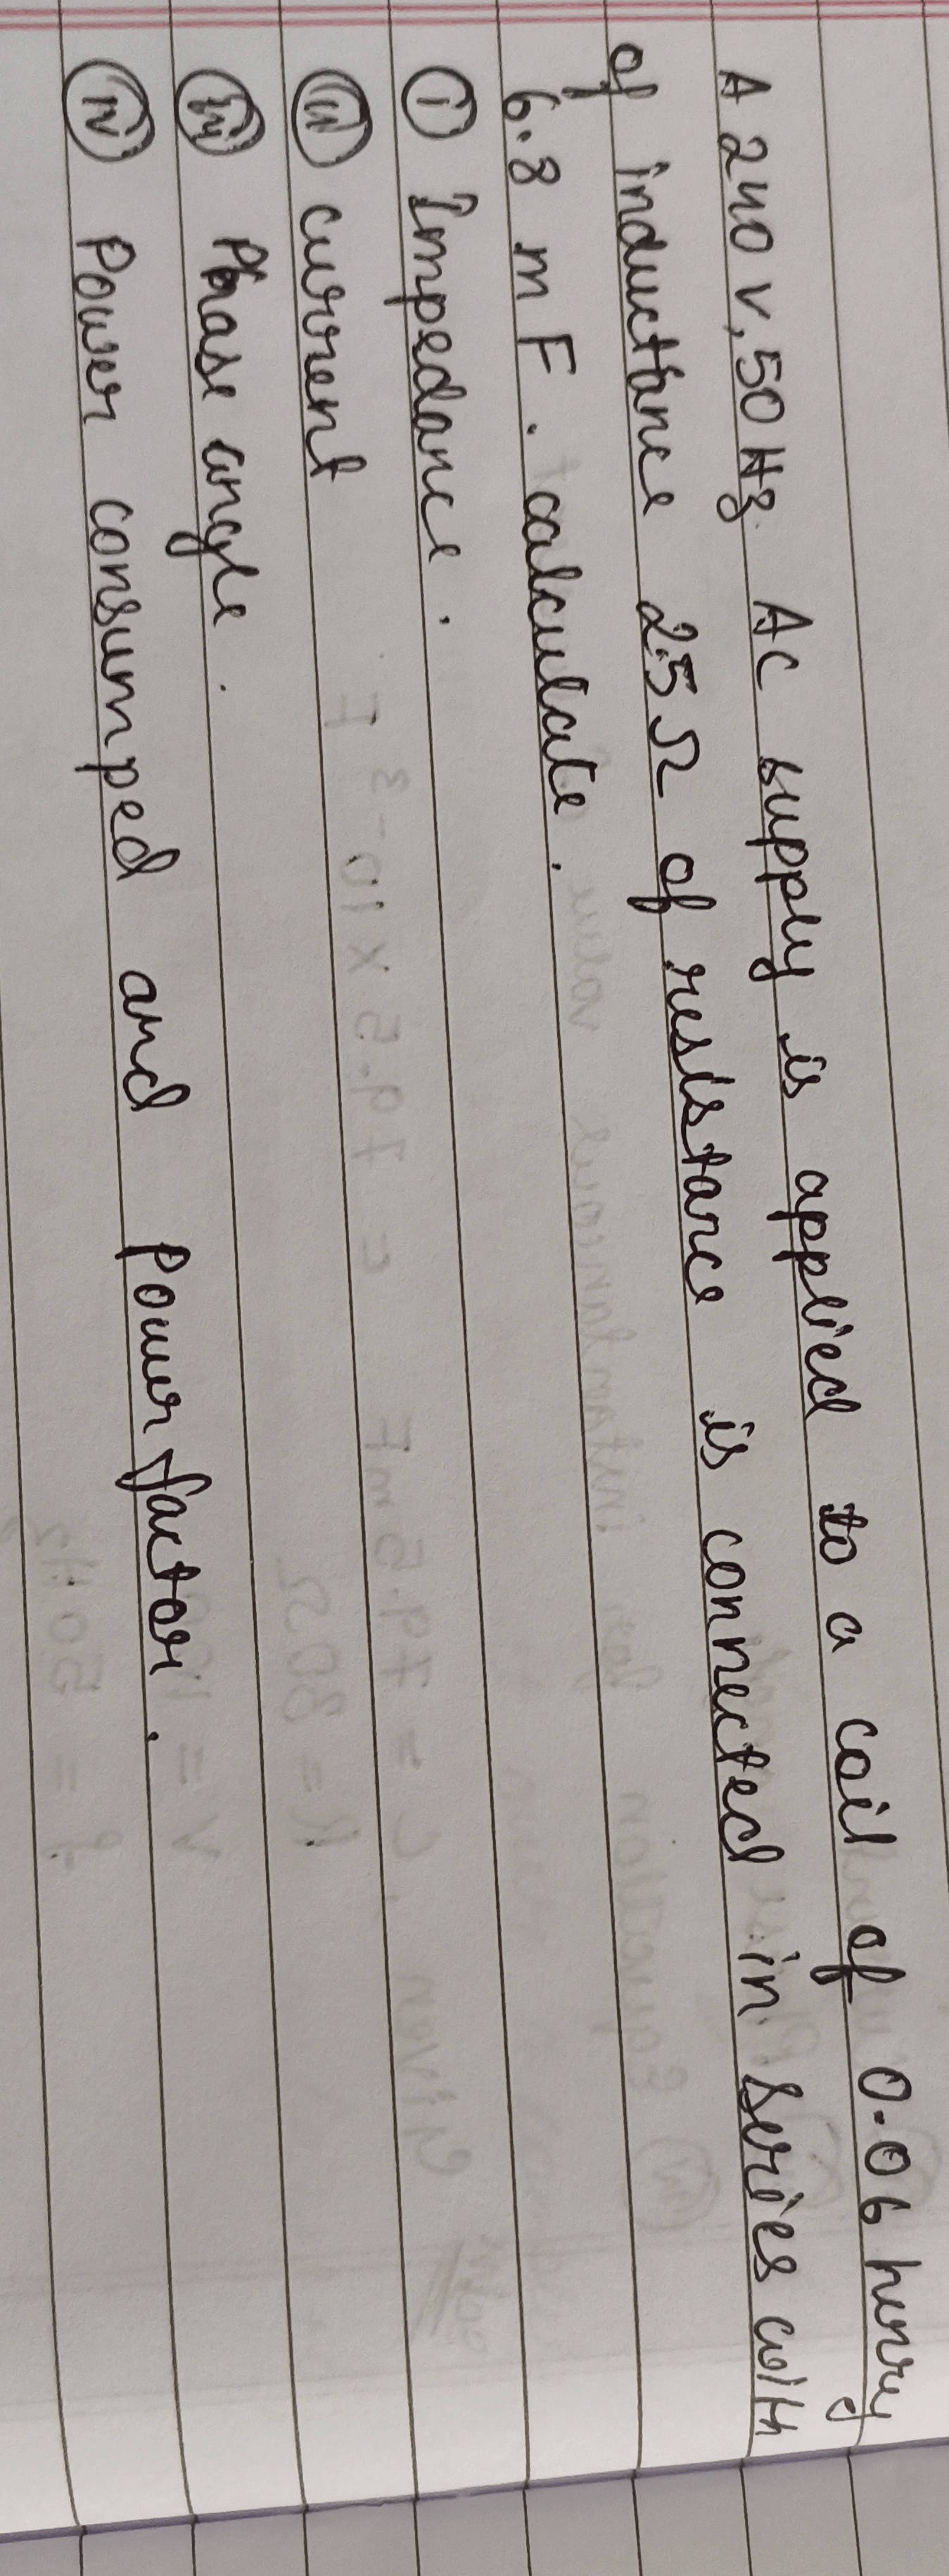 A 240 V, 50 Hz AC supply is applied to a coil of 0.06 henry
of inductance 2.5 Ω of resistance is connected in series with
6.8 mF. calculate.
(i) Impedance.
(ii) current
(iii) Phase angle.
(iv) Power consumped and power factor.